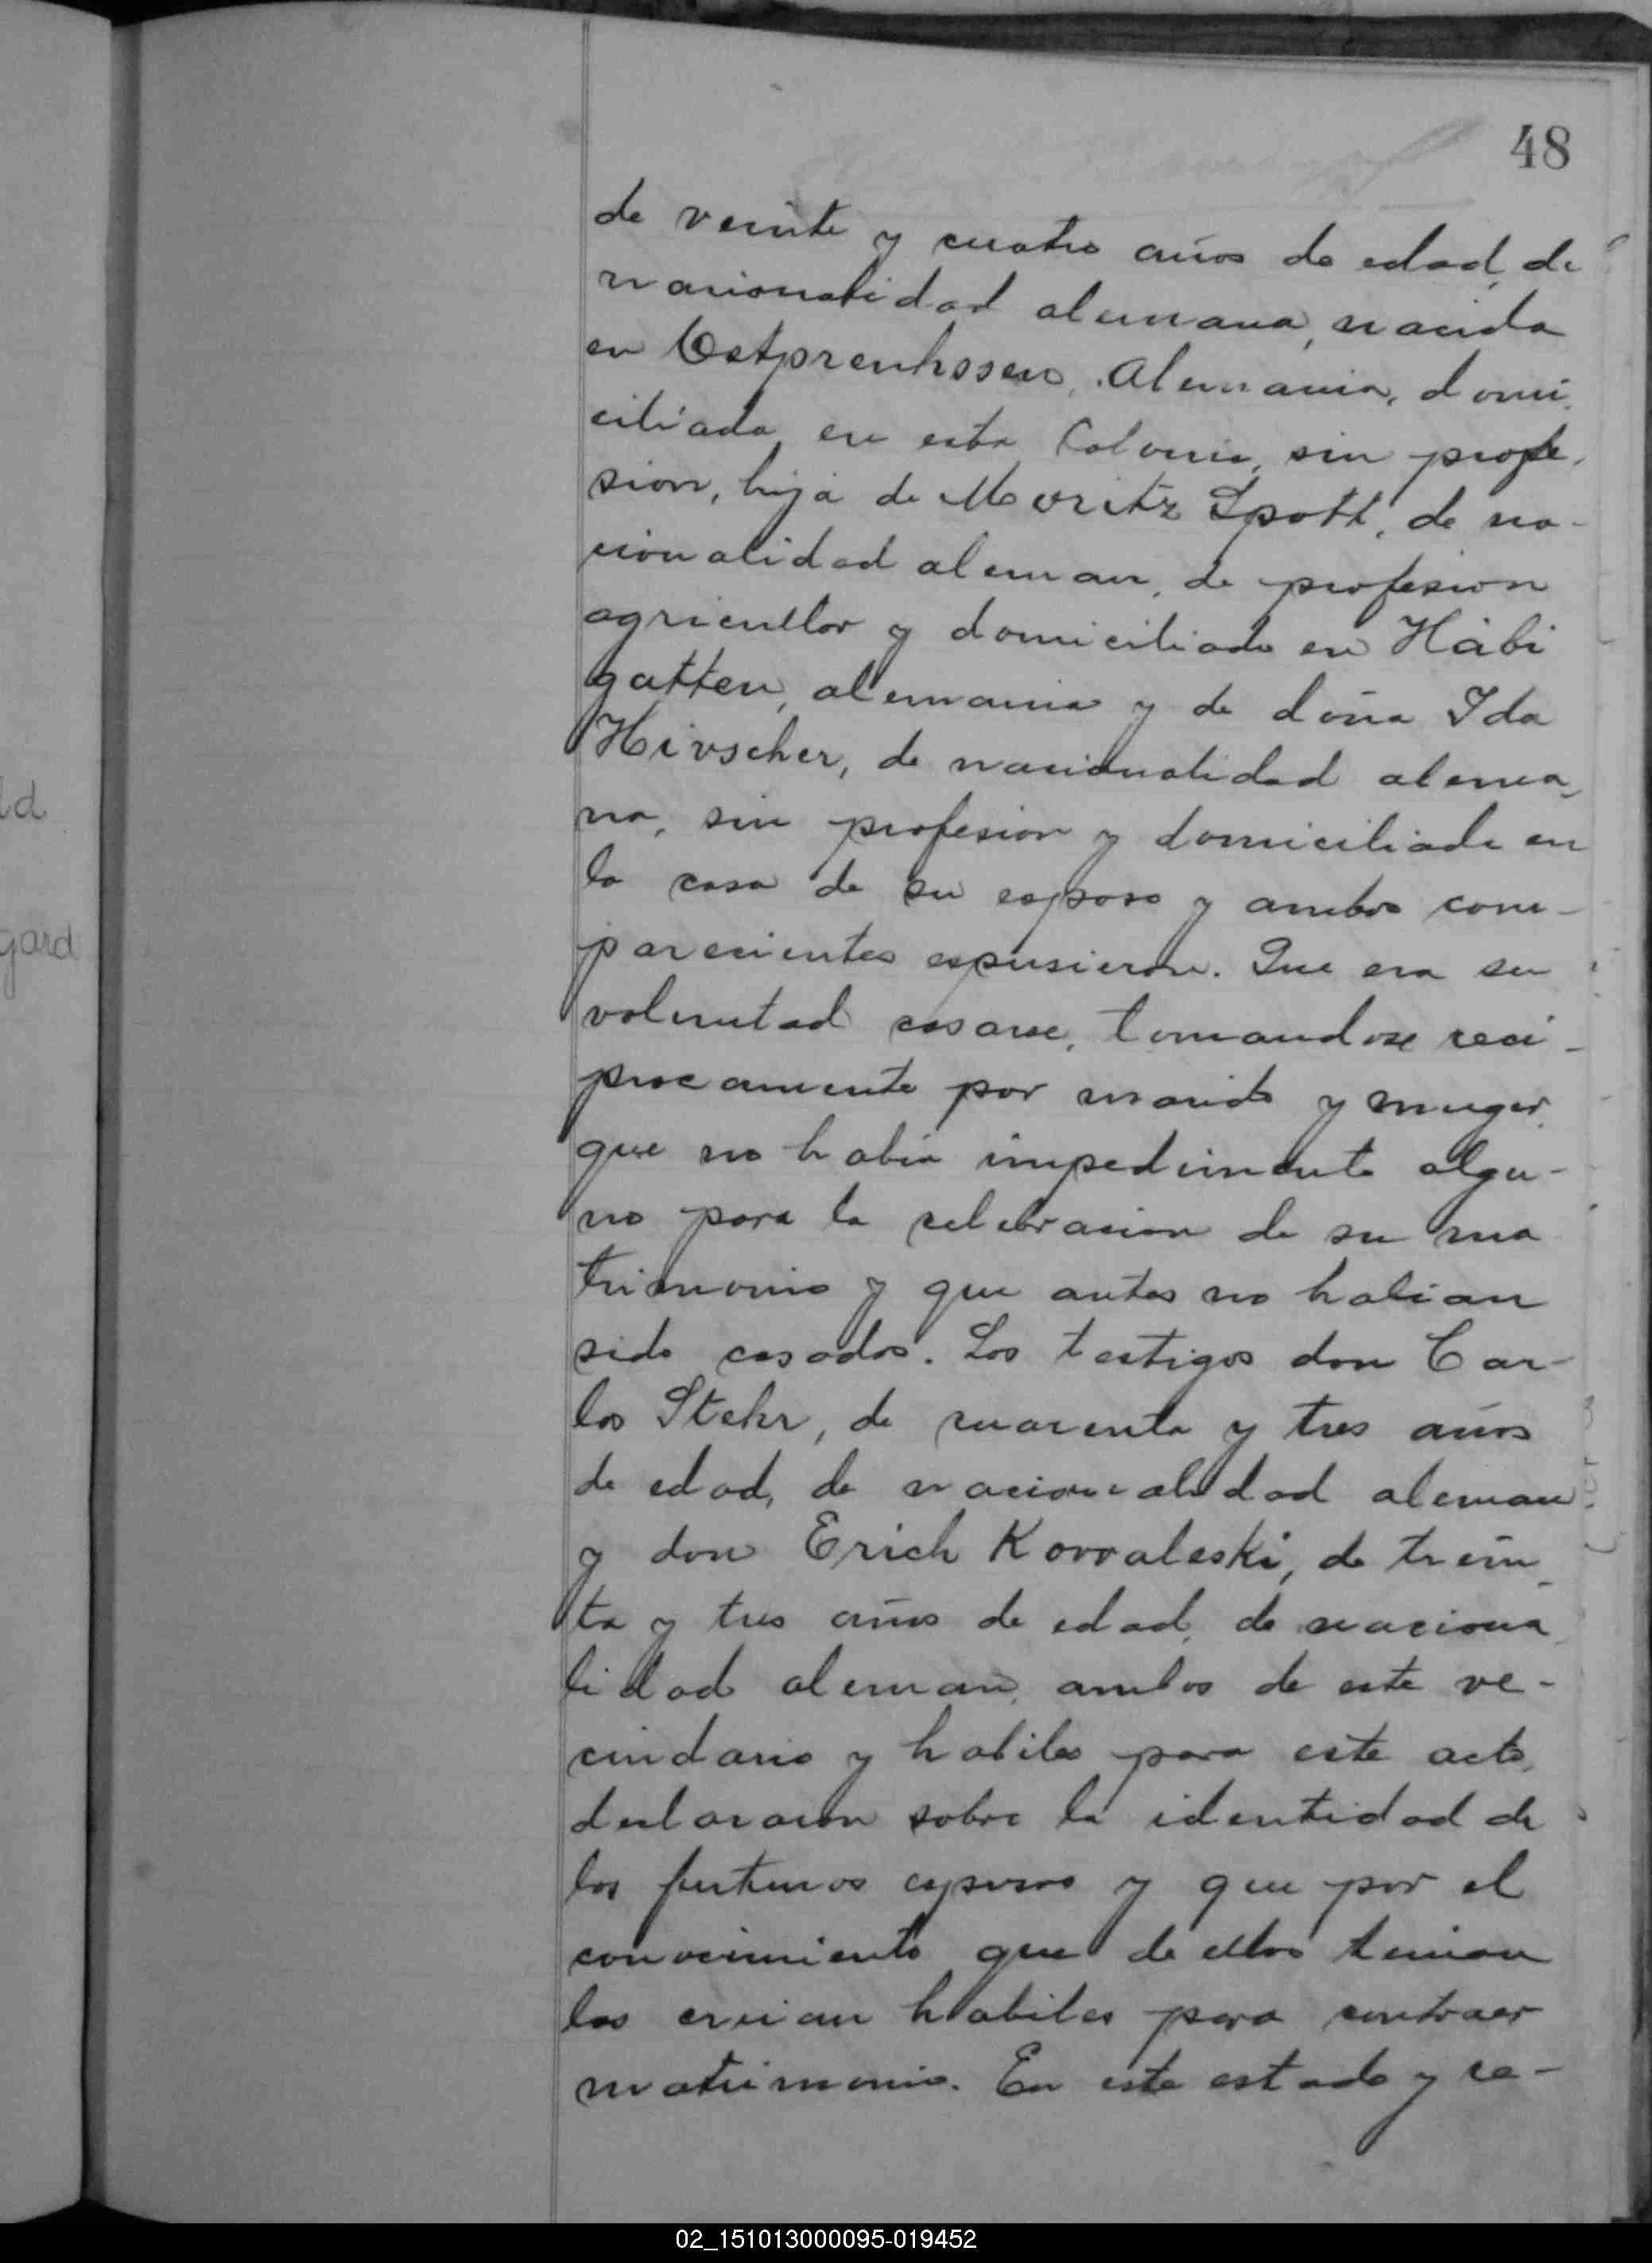 48
de veinte y cuatro años de edad, de
nacionalidad alemana, nacida
en Ostpreuhssen, Alemania, domi-
ciliada en esta Colonia, sin profe-
sion, hija de Moritz Spott, de na-
cionalidad aleman, de profesion
agricultor y domiciliado en Häbi
gatten, alemania y de doña Ida
Hirscher, de nacionalidad alema-
na, sin profesion y domiciliada en
la casa de su esposo y ambos com-
parecientes espusieron. Que era su
voluntad casarse, tomandose reci-
procamente por marido y muger,
que no habia impedimento algu-
no para la celebracion de su ma
trimonio y que antes no habian
sido casados. Los testigos don Car-
los Stehr, de cuarenta y tres años
de edad, de nacionalidad aleman
y don Erich Kowaleski, de trein-
ta y tres años de edad, de naciona
lidad aleman, ambos de este ve-
cindario y habiles para este acto,
declararon sobre la identidad de
los futuros esposos y que por el
conocimiento que de ellos tenian
los creian habiles para contraer
matrimonio. En este estado y re-
ld
gard
02_151013000095-019452